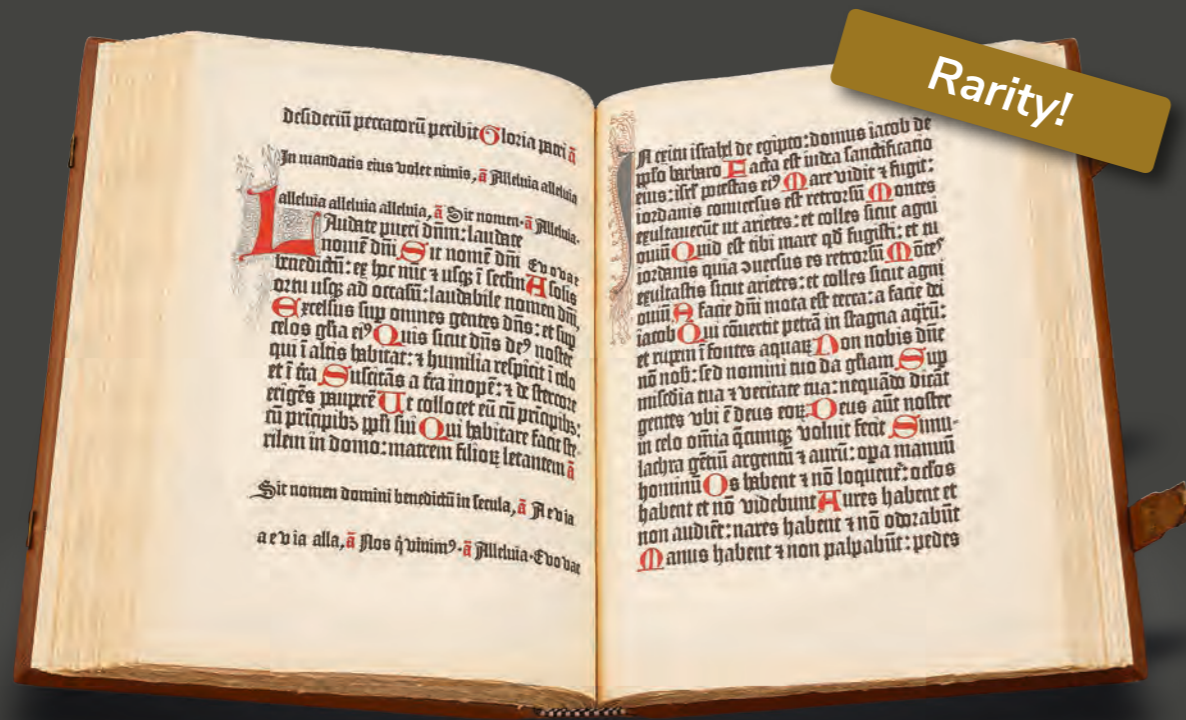 desideriū peccatorū peribit Gloria patri ā
In mandatis eius volet nimis, ā Alleluia alleluia
alleluia alleluia alleluia, ā Sit nomen· ā Alleluia·
LAudate pueri dn̄m: laudate
nomē dn̄i Sit nomē dn̄i Evovae
benedictū: ex hoc nūc ⁊ usqꝫ ī seclm̄ A solis
ortu usqꝫ ad occasū: laudabile nomen dn̄i,
Excelsus sup omnes gentes dn̄s: et sup
celos gl̄ia eiꝰ Quis sicut dn̄s deꝰ noster
qui ī altis habitat: ⁊ humilia respicit ī celo
et ī t̄ra Suscitās a t̄ra inopē: ⁊ de stercore
erigēs pauperē Ut collocet eū cū prīcipibꝫ:
cū prīcipibꝫ ppl̄i sui Qui habitare facit ste-
rilem in domo: matrem filioꝝ letantem ā
Sit nomen domini benedictū in secula, ā Aevia
aevia alla, ā Nos q̇ vivimꝰ· ā Alleluia· Evovae
IN exitu israhel de egipto: domus iacob de
pp̄lo barbaro Facta est iudea sanctificatio
eius: isrl̄ potestas eiꝰ Mare vidit ⁊ fugit:
iordanis conversus est retrorsū Montes
exultaverūt ut arietes: et colles sicut agni
ouiū Quid est tibi mare qd̄ fugisti: et tu
iordanis quia ↄversus es retrorsū Mōtes
exultastis sicut arietes: et colles sicut agni
ouiū A facie dn̄i mota est terra: a facie dei
iacob Qui cōuertit petrā in stagna aqrū:
et rupem ī fontes aquaꝝ Non nobis dn̄e
nō nob̄: sed nomini tuo da gl̄iam Sup
mīsc̄dia tua ⁊ veritate tua: nequādo dicāt
gentes vbi ē deus eoꝝ Deus aūt noster
in celo om̄ia q̄cumqꝫ voluit fecit Simu-
lachra gētiū argentū ⁊ aurū: opa manuū
hominū Os habent ⁊ nō loquent᷑: oclos
habent et nō videbunt Aures habent et
non audiēt: nares habent ⁊ nō odorabūt
Manus habent ⁊ non palpabūt: pedes
Rarity!